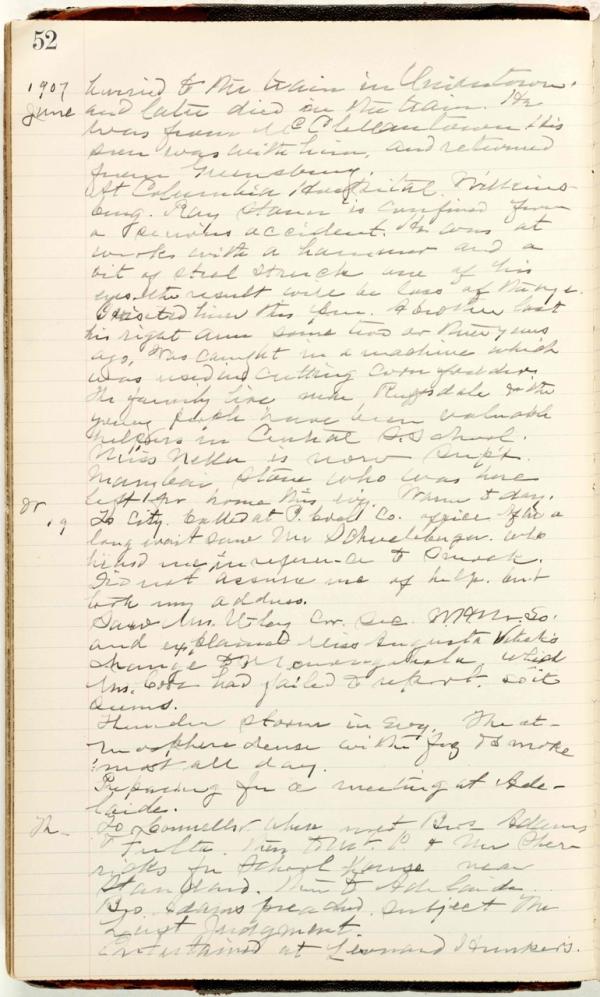 52
1907 hurried to the train in Uniontown.
June and later died on the train. He
was from McClellantown. His
son was with him, and returned
from Greensburg.
At Columbia Hospital, Wilkins-
burg. Ray Stann is confined from
a serious accident. He was at
work with a hammer and a
bit of steel struck one of his
eyes. the result will be loss of the eye.
I visited him this . A brother lost
his right arm some two or three years
ago, Was caught in a machine which
was used in cutting corn fodder.
The family live near Ruffsdale & the
young people have been valuable
helpers in Central S. School.
Miss Nella is now Supt.
Stone who was here
left for home this evg. Warm to day.
19 To City. Called at P. Coal Co. office After a
long wait saw Mr who
heard me in reference to Smock.
Did not assure me of help. but
took my address.
Saw Mrs. Wiley Cor. Sec. W.H.M. So.
and explained Miss Augusta
change to Monongahela, which
Mrs. had failed to report. so it
seems.
Thunder storm in Evg. The at-
mosphere dense with fog & smoke
most all day.
Preparing for a meeting at Ade-
laide.
Th- To Connells. where met Bros Adams
& . then to Mt. P & Mr
for School House near
Standard. Then to Adelaide.
Bro. Adams preached. subject The
Last Judgment.
Entertained at Leonard .